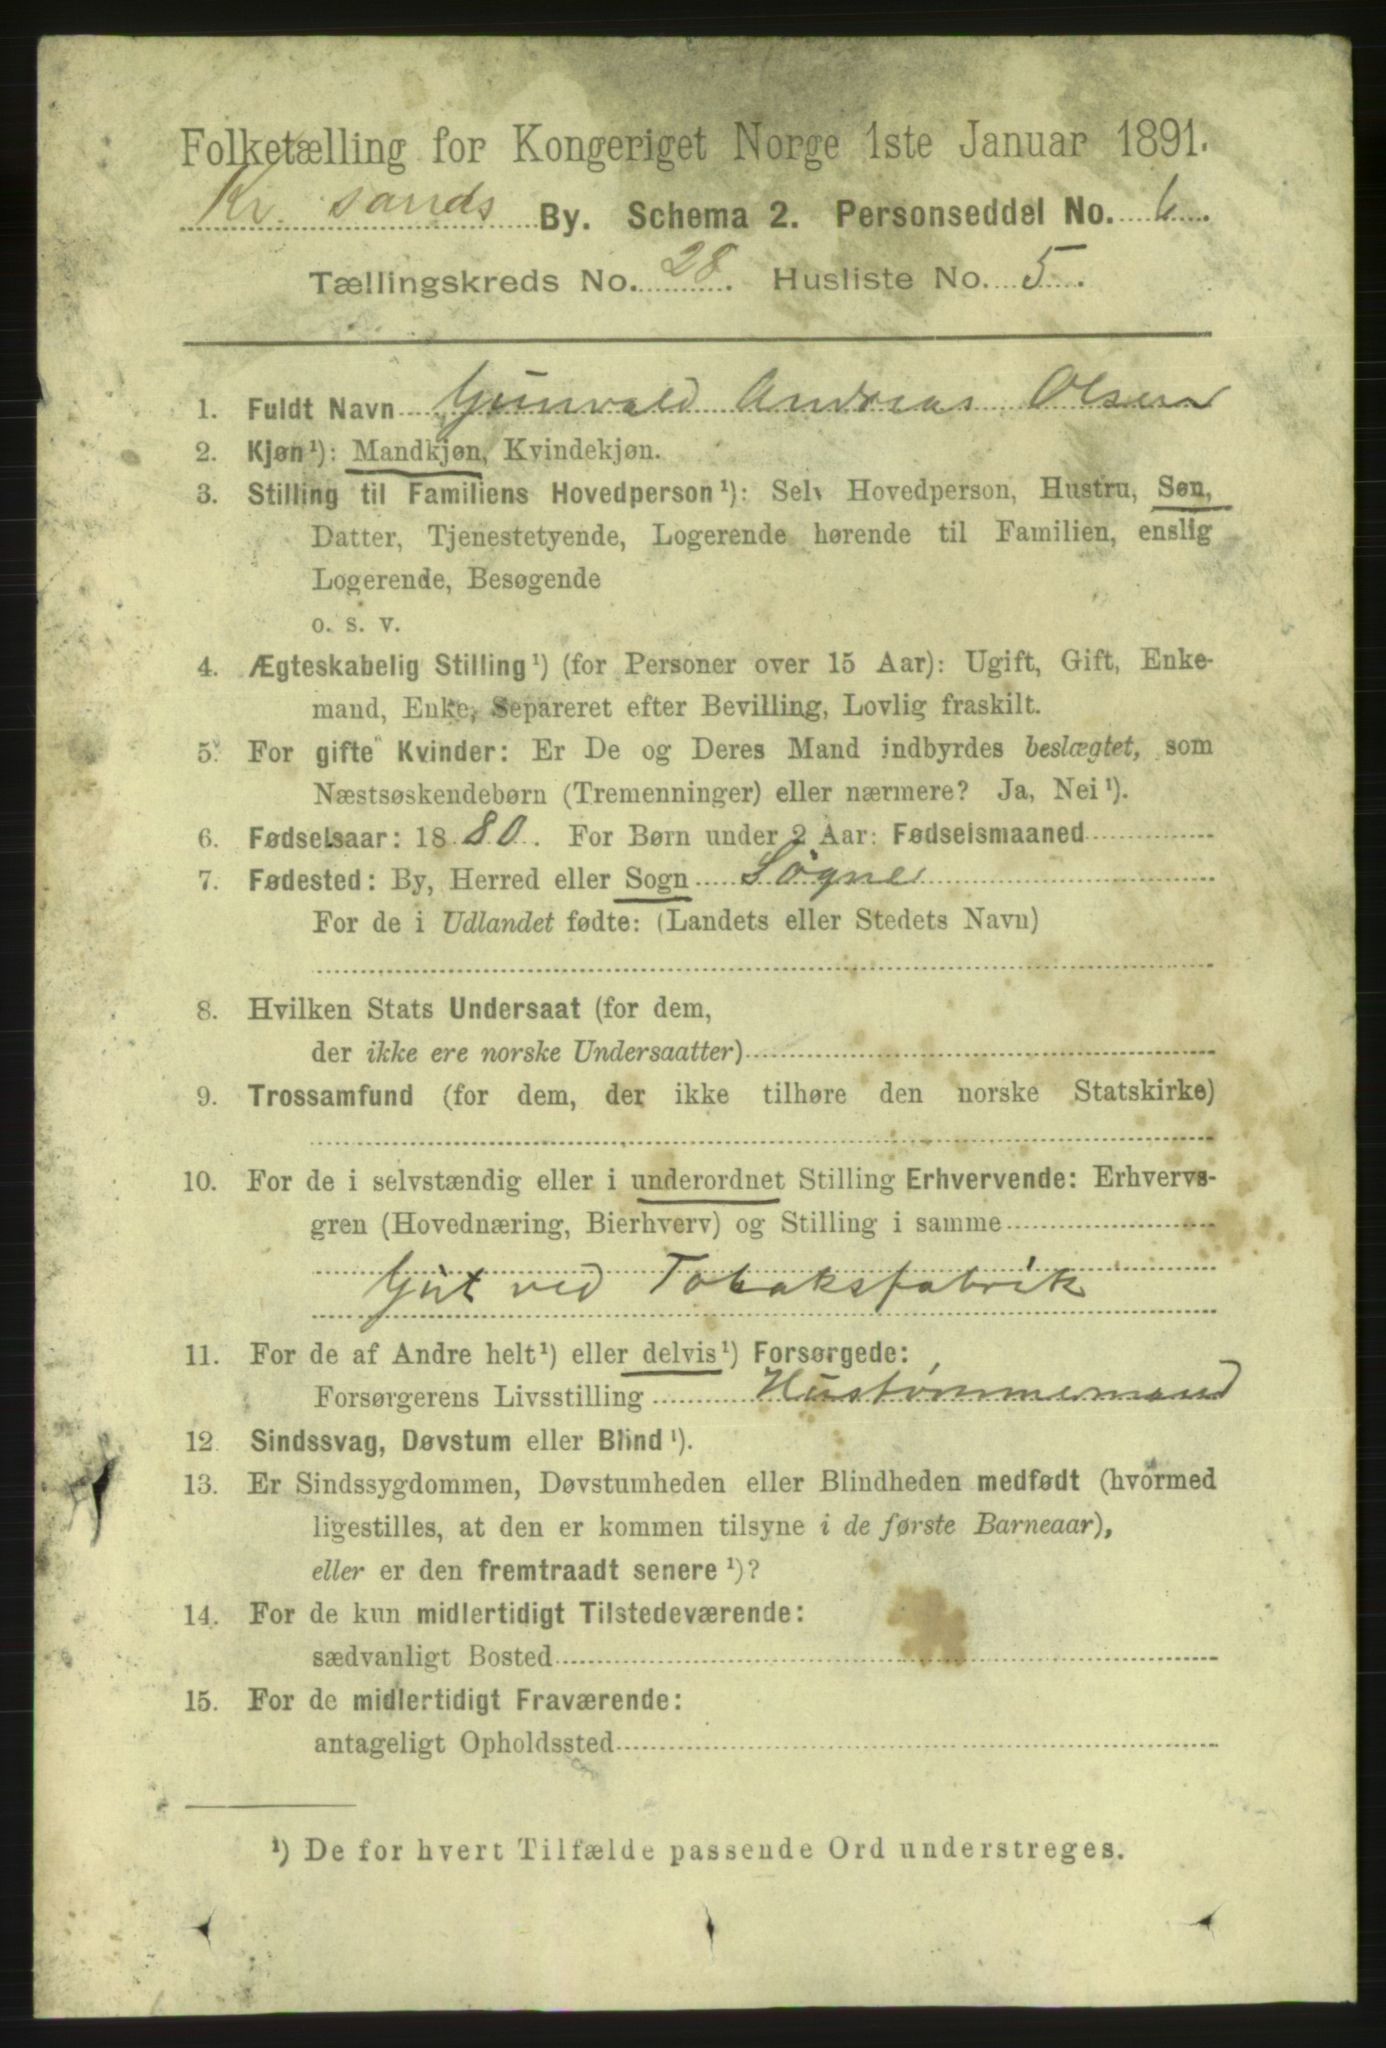 Folketælling for Kongeriget Norge 1ste Januar 1891.
Kr. sands By. Schema 2. Personseddel No. 6.
Tællingskreds No. 28. Husliste No. 5.
1. Fuldt Navn Gunvald Andreas Olsen
2. Kjøn¹): Mandkjøn, Kvindekjøn.
3. Stilling til Familiens Hovedperson¹): Selv Hovedperson, Hustru, Søn,
Datter, Tjenestetyende, Logerende hørende til Familien, enslig
Logerende, Besøgende
o. s. v.
4. Ægteskabelig Stilling¹) (for Personer over 15 Aar): Ugift, Gift, Enke-
mand, Enke, Separeret efter Bevilling, Lovlig fraskilt.
5. For gifte Kvinder: Er De og Deres Mand indbyrdes beslægtet, som
Næstsøskendebørn (Tremenninger) eller nærmere? Ja, Nei¹).
6. Fødselsaar: 1880. For Børn under 2 Aar: Fødselsmaaned
7. Fødested: By, Herred eller Sogn Søgne
For de i Udlandet fødte: (Landets eller Stedets Navn)
8. Hvilken Stats Undersaat (for dem,
der ikke ere norske Undersaatter)
9. Trossamfund (for dem, der ikke tilhøre den norske Statskirke)
10. For de i selvstændig eller i underordnet Stilling Erhvervende: Erhvervs-
gren (Hovednæring, Bierhverv) og Stilling i samme
Gut ved Tobaksfabrik
11. For de af Andre helt¹) eller delvis¹) Forsørgede:
Forsørgerens Livsstilling Hustømmermand
12. Sindssvag, Døvstum eller Blind¹).
13. Er Sindssygdommen, Døvstumheden eller Blindheden medfødt (hvormed
ligestilles, at den er kommen tilsyne i de første Barneaar),
eller er den fremtraadt senere¹)?
14. For de kun midlertidigt Tilstedeværende:
sædvanligt Bosted
15. For de midlertidigt Fraværende:
antageligt Opholdssted
¹) De for hvert Tilfælde passende Ord understreges.